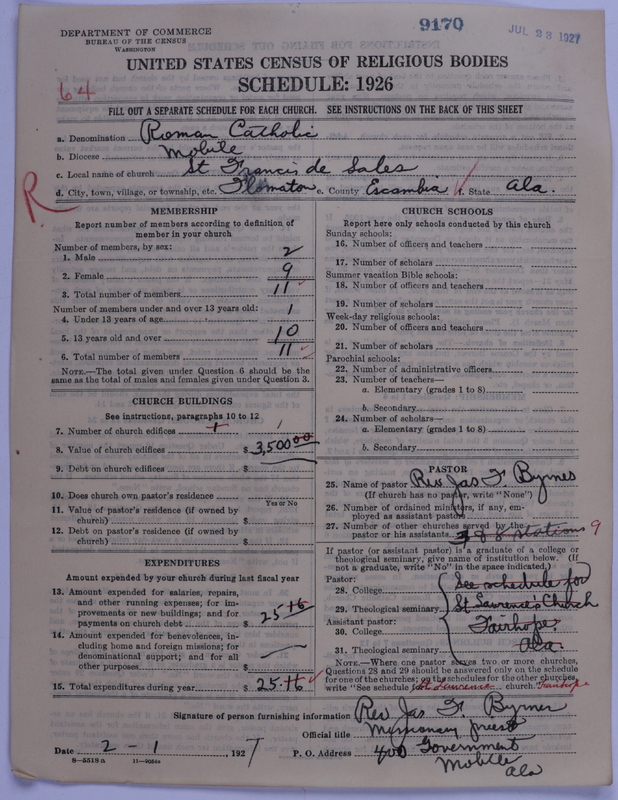 9170
JUL 23 1927
DEPARTMENT OF COMMERCE
BUREAU OF THE CENSUS
WASHINGTON
UNITED STATES CENSUS OF RELIGIOUS BODIES
64
SCHEDULE: 1926
FILL OUT A SEPARATE SCHEDULE FOR EACH CHURCH. SEE INSTRUCTIONS ON THE BACK OF THIS SHEET
a. Denomination Roman Catholic
b. Diocese Mobile
c. Local name of church St Francis de Sales
R d. City, town, village, or township, etc. Flomaton e. County Escambia f. State Ala.
MEMBERSHIP
Report number of members according to definition of
member in your church
Number of members, by sex:
1. Male 2
2. Female 9
3. Total number of members 11
Number of members under and over 13 years old:
4. Under 13 years of age 1
5. 13 years old and over 10
6. Total number of members 11
NOTE.—The total given under Question 6 should be the
same as the total of males and females given under Question 3.
CHURCH BUILDINGS
See instructions, paragraphs 10 to 12
7. Number of church edifices 1
8. Value of church edifices $ 3,500 00
9. Debt on church edifices $
10. Does church own pastor's residence
Yes or No
11. Value of pastor's residence (if owned by
church) $
12. Debt on pastor's residence (if owned by
church) $
EXPENDITURES
Amount expended by your church during last fiscal year
13. Amount expended for salaries, repairs,
and other running expenses; for im-
provements or new buildings; and for
payments on church debt $ 25 16
14. Amount expended for benevolences, in-
cluding home and foreign missions; for
denominational support; and for all
other purposes
15. Total expenditures during year $ 25 16
CHURCH SCHOOLS
Report here only schools conducted by this church
Sunday schools:
16. Number of officers and teachers
17. Number of scholars
Summer vacation Bible schools:
18. Number of officers and teachers
19. Number of scholars
Week-day religious schools:
20. Number of officers and teachers
21. Number of scholars
Parochial schools:
22. Number of administrative officers
23. Number of teachers—
a. Elementary (grades 1 to 8)
b. Secondary
24. Number of scholars—
a. Elementary (grades 1 to 8)
b. Secondary
PASTOR
25. Name of pastor Rev Jas F. Byrnes
(If church has no pastor, write "None")
26. Number of ordained ministers, if any, em-
ployed as assistant pastors
27. Number of other churches served by the
pastor or his assistants 8 stations 9
If pastor (or assistant pastor) is a graduate of a college or
theological seminary, give name of institution below. (If
not a graduate, write "No" in the space indicated.)
Pastor:
28. College See schedule for
29. Theological seminary St Lawrence's Church
Assistant pastor:
30. College Fairhope
31. Theological seminary Ala.
NOTE.—Where one pastor serves two or more churches,
Questions 28 and 29 should be answered only on the schedule
for one of the churches; on the schedules for the other churches
write "See schedule for St Lawrence church. Fairhope
Signature of person furnishing information Rev Jas F Byrnes
Official title Missionary priest
Date 2 - 1 1927 P. O. Address 400 Government
Mobile
Ala
8—5518 a 11—9054a